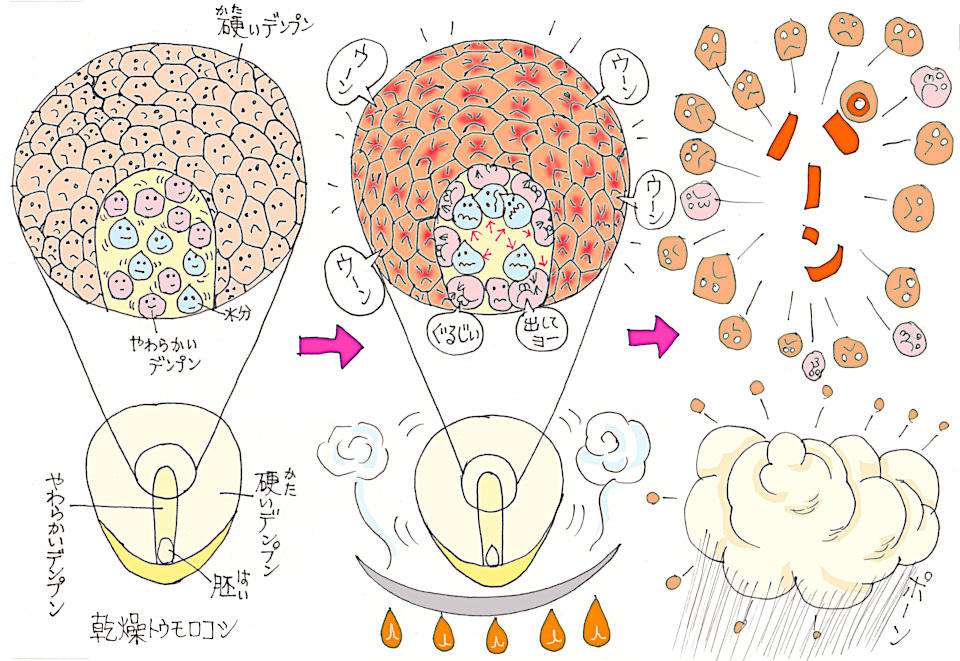 かた
硬いデンプン
水分
やわらかい
デンプン
やわらかいデンプン
かた
硬いデンプン
胚
はい
乾燥トウモロコシ
ウーン
ウーン
ウーン
ウーン
ぐるじい
出して
ヨー
パーン
ポーン